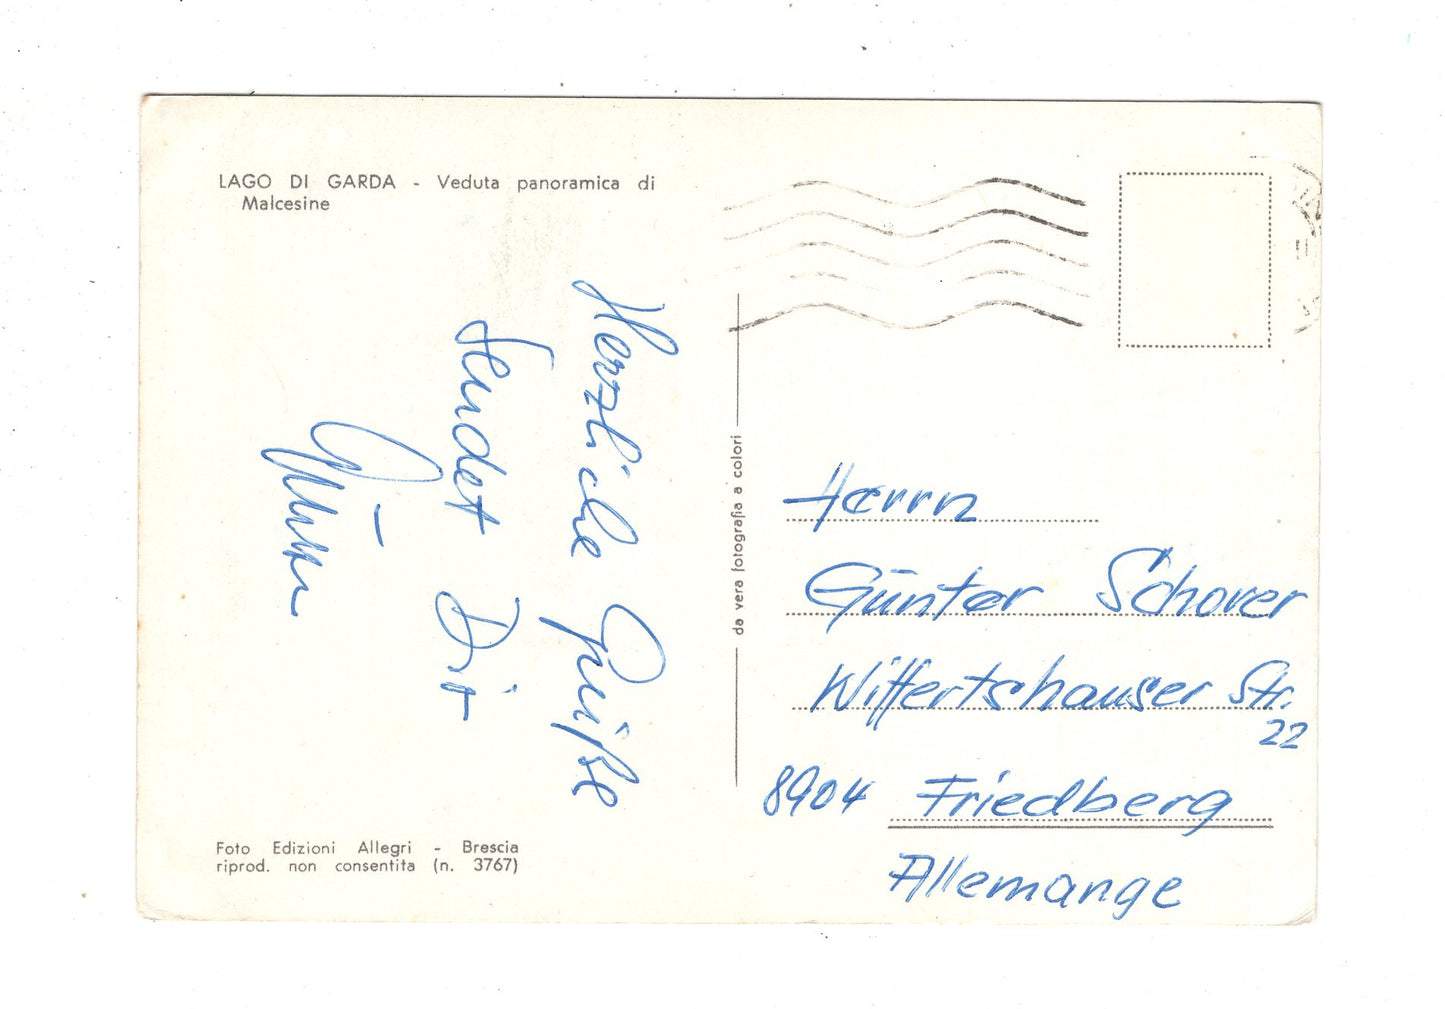 LAGO DI GARDA - Veduta panoramica di
Malcesine
Herzliche Grüße
sendet Dir
da vera fotografia a colori
Herrn
Günter Schorer
Wiffertshauser Str.
22
8904 Friedberg
Allemange
Foto Edizioni Allegri - Brescia
riprod. non consentita (n. 3767)